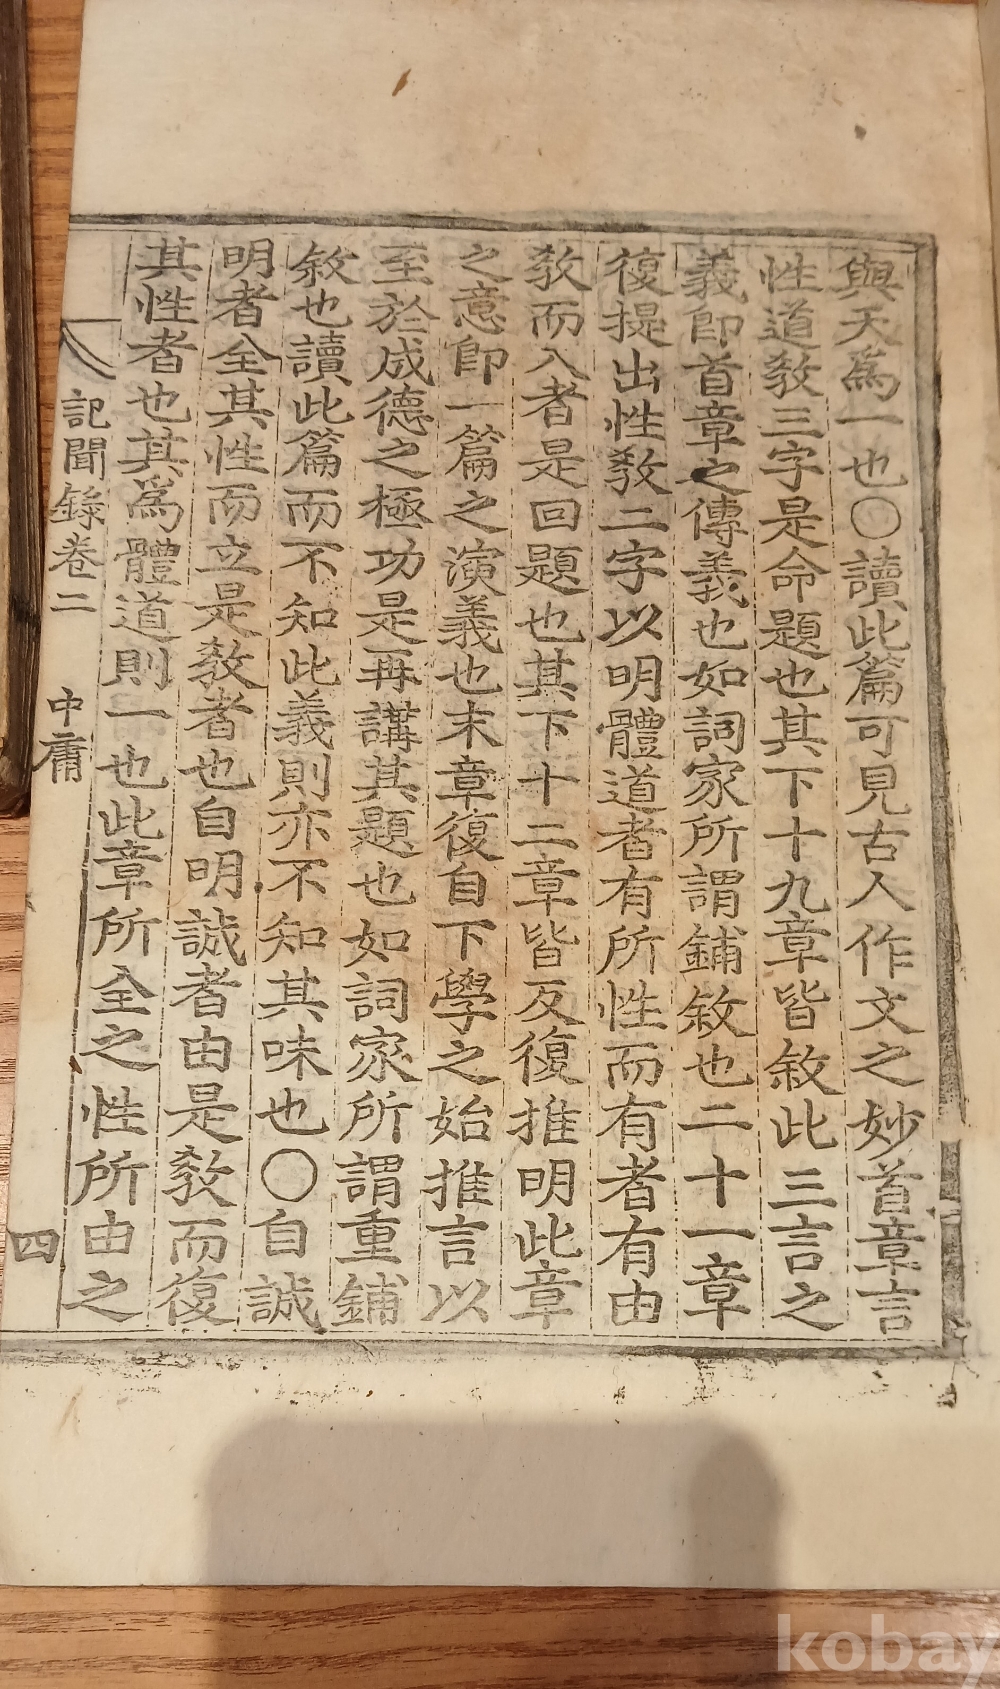 與天爲一也○讀此篇可見古人作文之妙首章言
性道敎三字是命題也其下十九章皆敘此三言之
義卽首章之傳義也如詞家所謂鋪敘也二十一章
復提出性敎二字以明體道者有所性而有者有由
敎而入者是回題也其下十二章皆反復推明此章
之意卽一篇之演義也末章復自下學之始推言以
至於成德之極功是再講其題也如詞家所謂重鋪
敘也讀此篇而不知此義則亦不知其味也○自誠
明者全其性而立是敎者也自明誠者由是敎而復
其性者也其爲體道則一也此章所全之性所由之
記聞錄卷二 中庸 四
kobay